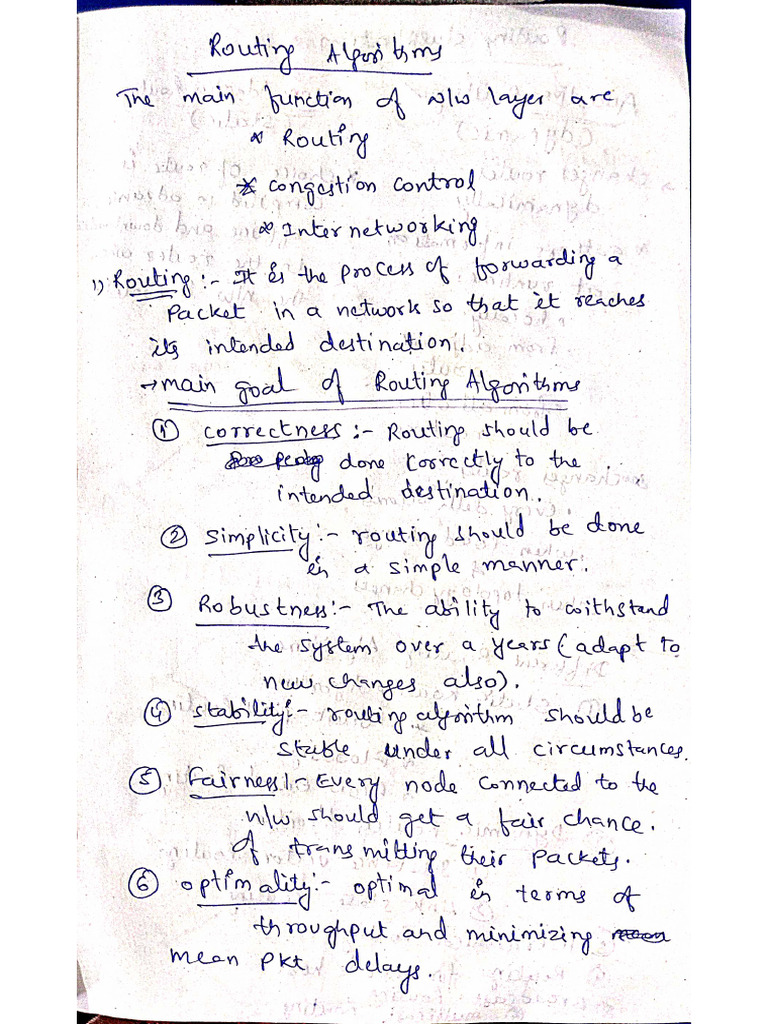 Routing Algorithms
The main function of N/w layer are
* Routing
* Congestion control
* Internetworking
1) Routing :- It is the process of forwarding a
Packet in a network so that it reaches
its intended destination.
→ main goal of Routing Algorithms
① correctness :- Routing should be
done correctly to the
intended destination.
② Simplicity :- routing should be done
in a simple manner.
③ Robustness :- The ability to withstand
the system over a years (adapt to
new changes also).
④ stability :- routing algorithm should be
stable under all circumstances.
⑤ Fairness :- Every node connected to the
n/w should get a fair chance.
of transmitting their packets.
⑥ optimality :- optimal in terms of
throughput and minimizing mean
mean pkt delays.